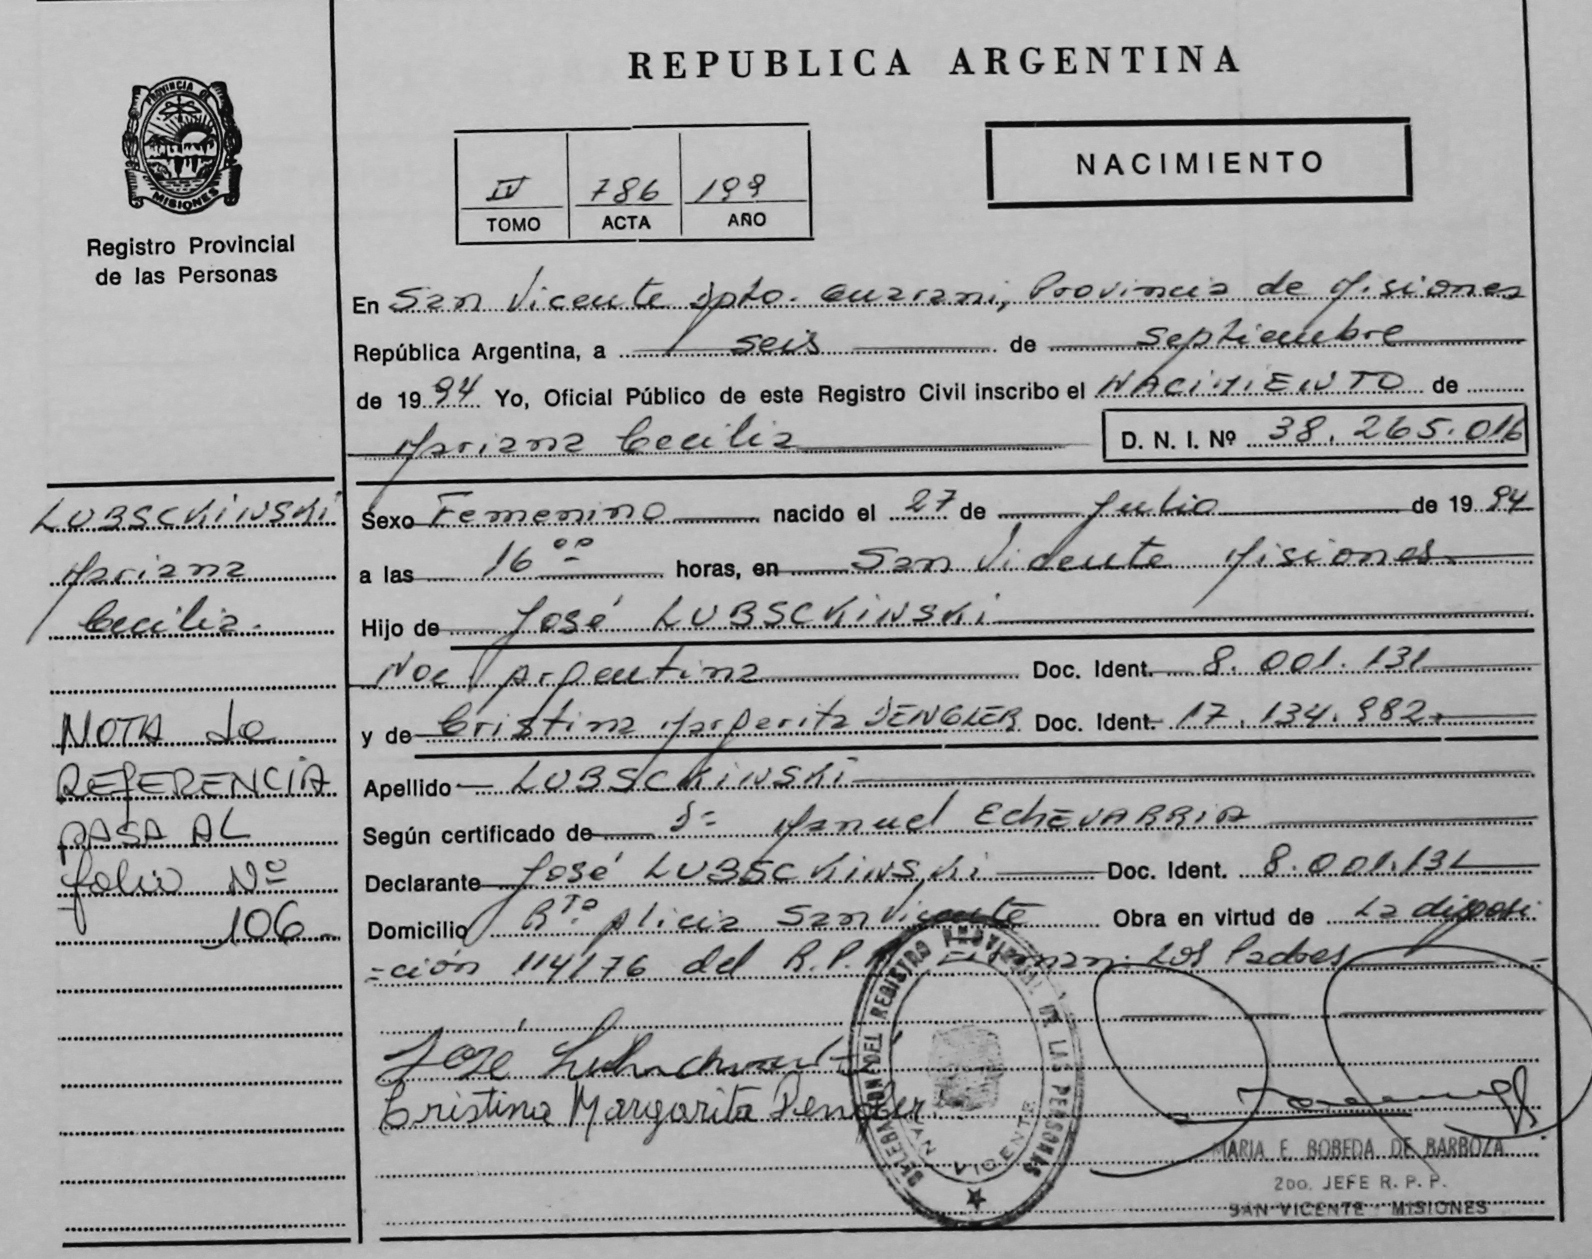 REPUBLICA ARGENTINA
PROVINCIA DE
MISIONES
Registro Provincial
de las Personas
IV 786 199
TOMO ACTA AÑO
NACIMIENTO
En San Vicente Dpto. Guarani, Provincia de Misiones
República Argentina, a seis de Septiembre
de 1994 Yo, Oficial Público de este Registro Civil inscribo el NACIMIENTO de
Mariana Cecilia D. N. I. Nº 38.265.016
LUBSCKINSKI
Mariana
Cecilia.
NOTA de
REFERENCIA
PASA AL
folio Nº
106
Sexo Femenino nacido el 27 de Julio de 1994
a las 16 ºº horas, en San Vicente Misiones
Hijo de José LUBSCKINSKI
Nac Argentina Doc. Ident. 8.001.131
y de Cristina Margarita DENGLER Doc. Ident. 17.134.982
Apellido LUBSCKINSKI
Según certificado de Manuel EChEVARRIA
Declarante José LUBSCKINSKI Doc. Ident. 8.001.131
Domicilio Alicia San Vicente Obra en virtud de La disposi
=ción 114/76 del R.P.P. Firman: Los Padres
José
Cristina Margarita Dengler
DELEGACION DEL REGISTRO PROVINCIAL DE LAS PERSONAS
SAN VICENTE
MARIA E. BOBEDA DE BARBOZA
2DO. JEFE R. P. P.
SAN VICENTE - MISIONES